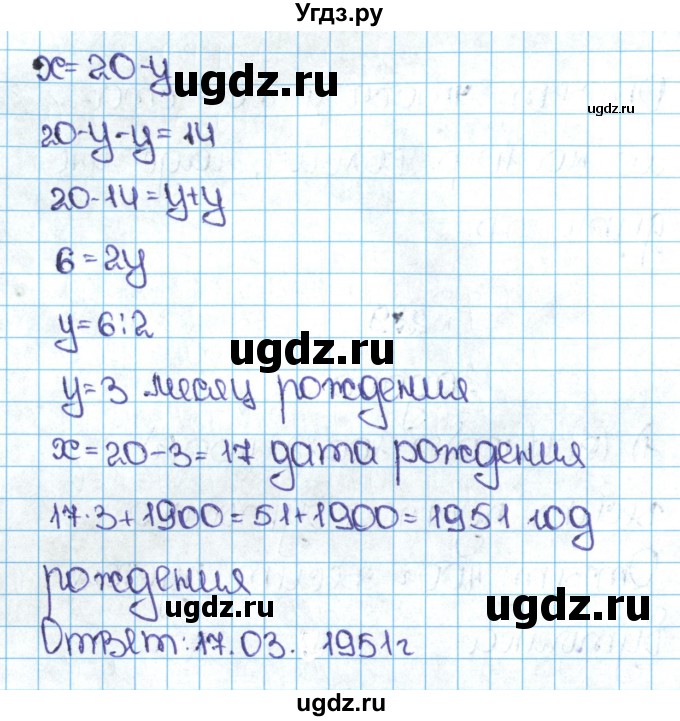 Угдз.ру
x=20-y
ugdz.ru
ugdz.ru
20-y-y=14
20-14=y+y
6=2y
y=6:2
ugdz.ru
y=3 месяц рождения
x=20-3=17 дата рождения
17·3+1900=51+1900=1951 год
рождения
ugdz.ru
ugdz.ru
Ответ: 17.03. 1951г
ugdz.ru